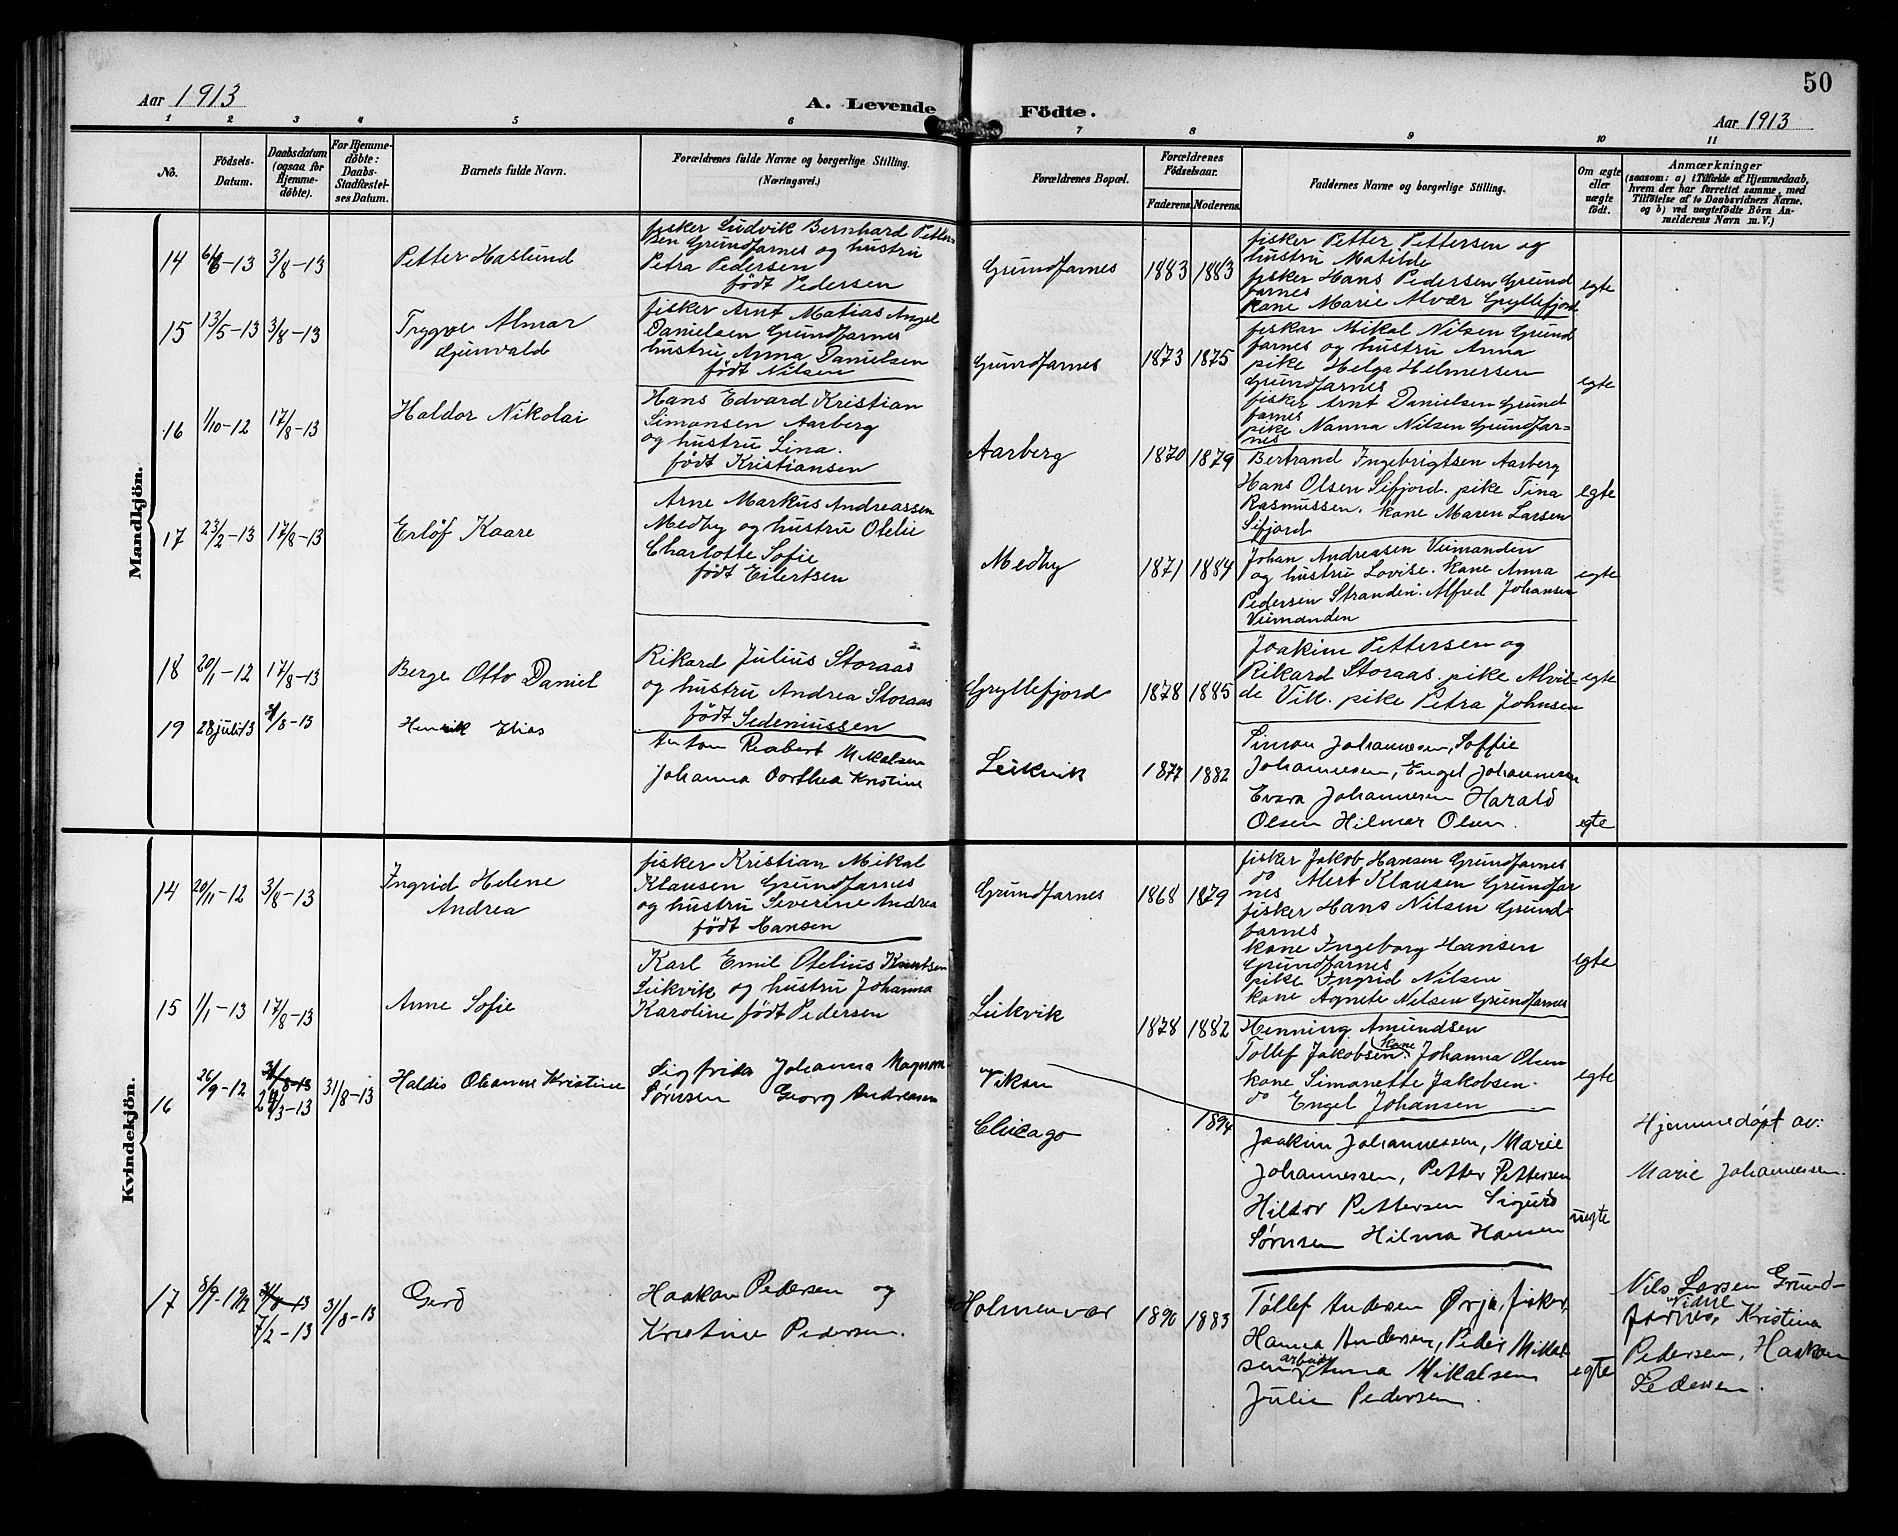 50
Aar 1913
A. Levende Födte.
Aar 1913
1 2 3 4 5 6 7 8 9 10 11
No.
Födsels-
Datum.
Daabsdatum
(ogsaa for
Hjemme-
döbte).
For Hjemme-
döbte:
Daabs-
Stadfæstel-
ses Datum.
Barnets fulde Navn.
Forældrenes fulde Navne og borgerlige Stilling.
(Næringsvei.)
Forældrenes Bopæl.
Forældrenes
Födselsaar.
Faderens. Moderens.
Faddernes Navne og borgerlige Stilling.
Om ægte
eller
uægte
födt.
Anmærkninger
(saasom: a) i Tilfælde af Hjemmedaab,
hvem der har forrettet samme, med
Tilföielse af to Daabsvidners Navne,
og b) ved uægtefödte Börn An-
melderens Navn m. V.)
Mandkjön.
14
6/6-13
3/8-13
Petter Haslund
fisker Ludvik Bernhard Petter-
sen Grundfarnes og hustru
Petra Pedersen
født Pedersen
Grundfarnes
1883 1883
fisker Petter Pettersen og
hustru Matilde
fisker Hans Pedersen Grund
farnes
kone Marie Alvær Gryllefjord
egte
15
13/5-13
3/8-13
Trygve Almar
Gunvald
fisker Arnt Matias Angel
Danielsen Grundfarnes
hustru Anna Danielsen
født Nilsen
Grundfarnes
1873 1875
fisker Mikal Nilsen Grund
farnes og hustru Anna
pike Helga Helmersen
Grundfarnes
fisker Arnt Danielsen Grund
farnes
pike Nanna Nilsen Grundfar=
nes
egte
16
1/10-12
17/8-13
Haldor Nikolai
Hans Edvard Kristian
Simonsen Aarberg
og hustru Lina.
født Kristiansen
Aarberg
1870 1879
Bertrand Ingebrigtsen Aarberg
Hans Olsen Sifjord. pike Tina
Rasmussen. kone Maren Larsen
Sifjord
egte
17
23/2-13
17/8-13
Erlöf Kaare
Arne Markus Andreassen
Medby og hustru Otelie
Charlotte Sofie
født Eilertsen
Medby
1871 1884
Johan Andreasen Veimanden
og hustru Lovise. kone Anna
Pedersen Stranden. Alfred Johansen
Veimanden
egte
18
20/1-12
17/8-13
Berge Otto Daniel
Rikard Julius Storaas
og hustru Andrea Storaas
født Sedeniussen
Gryllefjord
1878 1885
Joakim Pettersen og
Rikard Storaas. pike Alvil-
de Vill. pike Petra Johnsen
egte
19
28 juli 13
31/8-13
Henrik Elias
Anton Reabert Mikalsen
Johanna Dorthea Kristine
Leikvik
1877 1882
Simon Johannesen, Soffie
Johannesen, Engel Johannesen
Evara Johannesen Harald
Olsen Hilmar Olsen.
egte
Kvindekjön.
14
20/11-12
3/8-13
Ingrid Helene
Andrea
fisker Kristian Mikal
Klausen Grundfarnes
og hustru Severine Andrea
født Hansen
Grundfarnes
1868 1879
fisker Jakob Hansen Grundfarnes
do Alert Klausen Grundfar
nes
fisker Hans Nilsen Grund-
farnes
kone Ingeborg Hansen
Grundfarnes
pike Ingrid Nilsen
kone Agnete Nilsen Grundfarnes
egte
15
1/1-13
17/8-13
Anne Sofie
Karl Emil Otelius Knutsen
Leikvik og hustru Johanna
Karoline født Pedersen
Leikvik
1878 1882
Henning Amundsen
Tollef Jakobsen. kone Johanna Olsen
kone Simonette Jakobsen.
do Engel Johansen
egte
16
26/9-12
31/8-13
24/3-13
31/8-13
Haldis Ohanne Kristine
Sigfrida Johanna Magnora
Sørnsen Georg Andreasen
Vikan
Chicago
1894
Joakim Johannessen, Marie
Johannessen, Petter Pettersen
Hildor Pettersen Sigurd
Sørnsen Hilma Hansen
uegte
Hjemmedøpt av:
Marie Johannessen.
17
8/9-1912
31/8-13
7/2-13
31/8-13
Gerd
Haakon Pedersen og
Kristine Pedersen.
Holmenvær
1890 1883
Tollef Andersen Ørja, fisker,
Hanna Andersen, Peder Mikal-
sen arbeider Anna Mikalsen
Julie Pedersen.
egte
Nils Larsen Grund-
farnes, Vidne Kristina
Pedersen, Haakon
Pedersen.